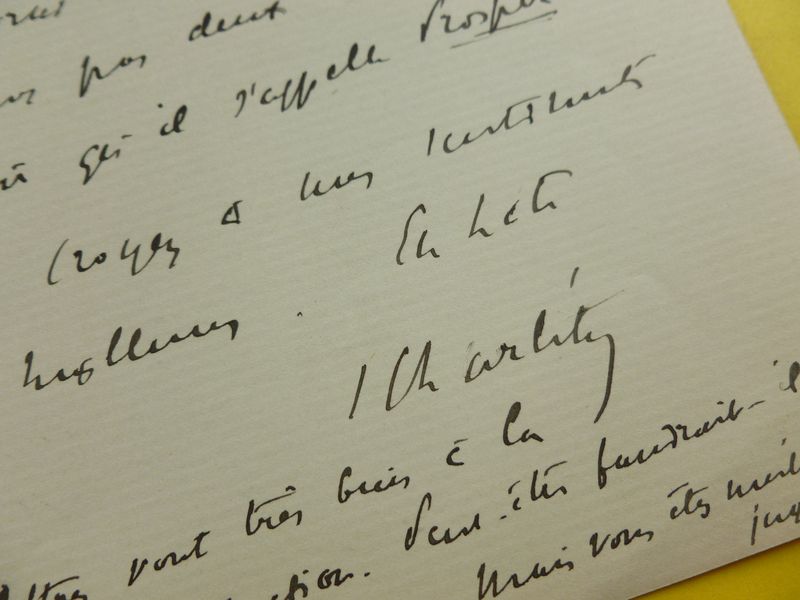 pas dent
qu'il s'appelle Prosper
Croyez à mes sentiments
meilleurs. En hâte
S Charléty
vont très bien à la
Peut-être faudrait-il
Mais vous êtes meil